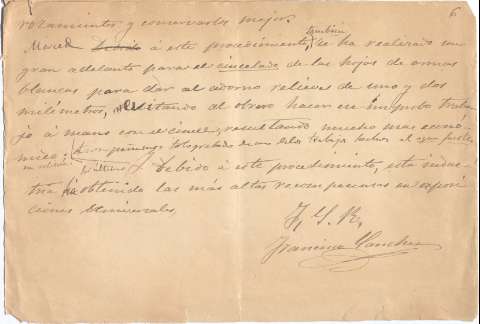 6
rozamientos y conservarla mejor.
Merced Debido á este procedimiento, también se ha realizado un
gran adelanto para el cincelado de las hojas de armas
blancas para dar al adorno relieves de uno y dos
milímetros, evitando al obrero hacer un improbo traba-
jo á mano con el cincel, resultando mucho mas econó-
mico.
Debido á este procedimiento, esta indus-
tria ha obtenido las más altas recompensas en exposi-
ciones Universales.
F. S. R.
Francisco Sanchez